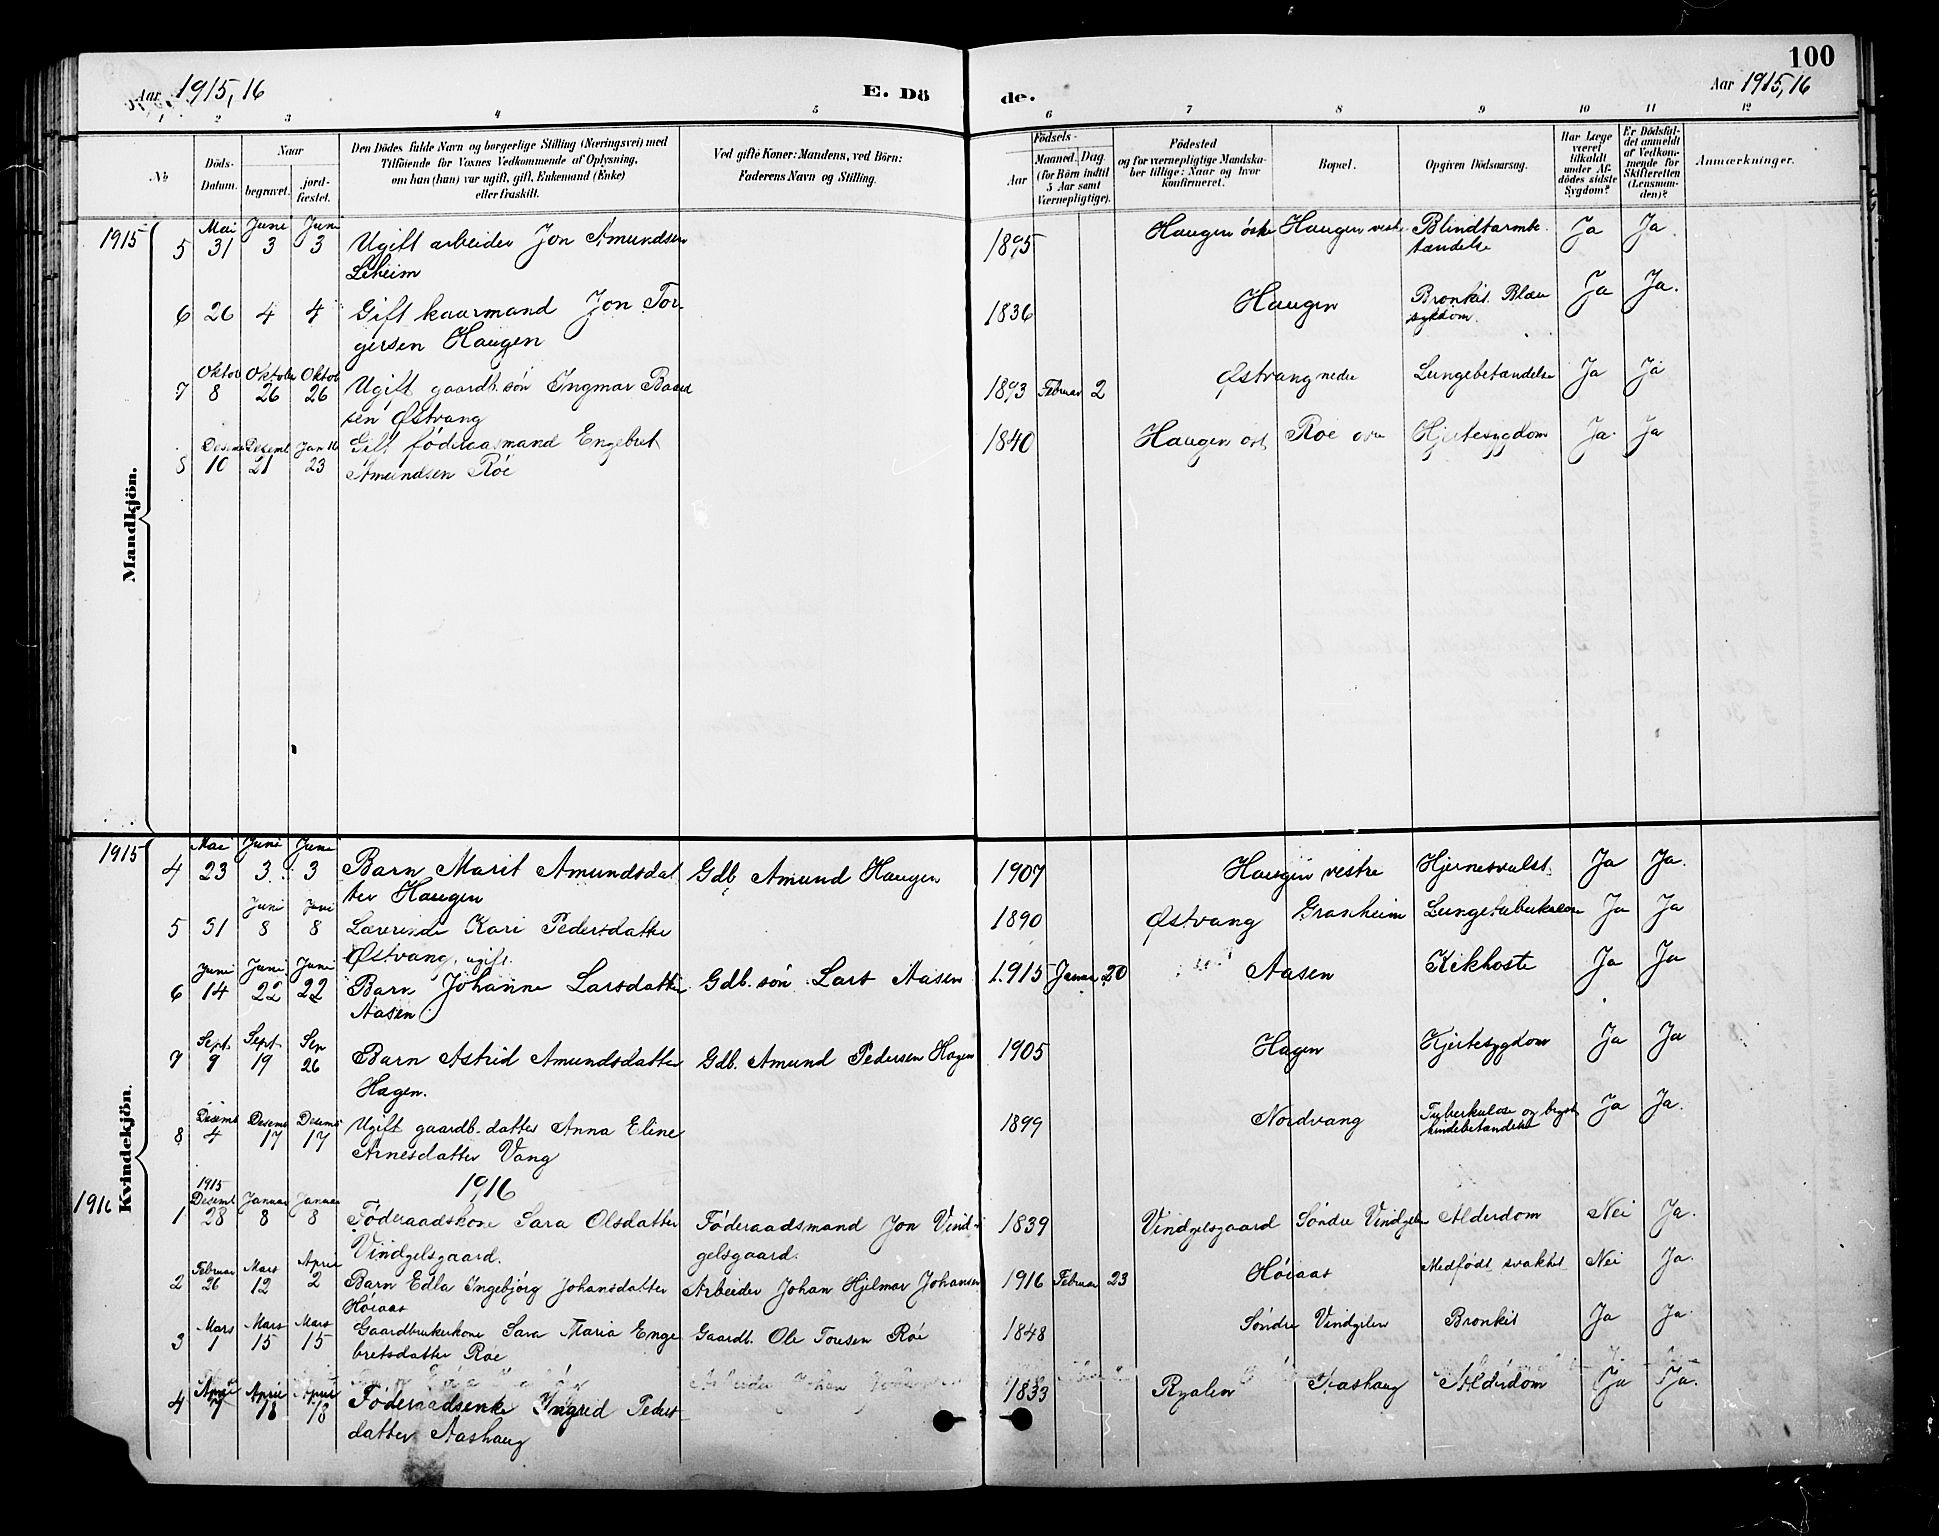 100
Aar 1915,16
E. Dö
de.
Aar 1915,16
1 2 3 4 5 6 7 8 9 10 11 12
No
Döds-
Datum.
Naar
begravet.
jord-
fæstet.
Den Dödes fulde Navn og borgerlige Stilling (Næringsvei) med
Tilföiende for Voxnes Vedkommende af Oplysning,
om han (hun) var ugift, gift, Enkemand (Enke)
eller fraskilt.
Ved gifte Koner: Mandens, ved Börn:
Faderens Navn og Stilling.
Födsels-
Aar
Maaned. Dag.
(for Börn indtil
5 Aar samt
Værnepligtige).
Födested
og for værnepligtige Mandska-
ber tillige: Naar og hvor
konfirmeret.
Bopæl.
Opgiven Dödsaarsag.
Har Læge
været
tilkaldt
under Af-
dödes sidste
Sygdom?
Er Dödsfal-
det anmeldt
af Vedkom-
mende for
Skifteretten
(Lensman-
den)?
Anmærkninger.
Mandkjön.
1915
Mai Juni Juni
5 31 3 3 Ugift arbeider Jon Amundsen 1895 Haugen östre Haugen vestre Blindtarmbe- Ja Ja
Leheim tændelse
6 26 4 4 Gift kaarmand Jon Tor- 1836 Haugen Bronkit. Blære Ja Ja.
gersen Haugen sykdom.
Oktob Oktober Oktob
7 8 26 26 Ugift gaardb. sön Ingmar Baard 1893 Februar 2 Østvang nedre Lungebetændelse Ja Ja
sen Østvang
Desemb Desembr Jan 16
8 10 21 23 Gift föderaasmand Engebret 1840 Haugen öst Roe Hjertesygdom Ja Ja
Amundsen Röe
Kvindekjön.
1915
Mai Juni Juni
4 23 3 3 Barn Marit Amundsdat Gdb. Amund Haugen 1907 Haugen vestre Hjernesvulst. Ja Ja.
ter Haugen
Juni Juni
5 31 8 8 Lærerinde Kari Pedersdatter 1890 Østvang Granheim Lungetuberkulose Ja Ja
Østvang, ugift.
Juni Juni Juni
6 14 22 22 Barn Johanne Larsdatter Gdb. sön Lars Aasen 1915 Januar 20 Aasen Kikhoste Ja Ja
Aasen
Sept. Sept. Sep
7 9 19 26 Barn Astrid Amundsdatter Gdb. Amund Pedersen Hagen 1905 Hagen Hjertesygdom Ja Ja
Hagen.
Desemb Desemb Desemb
8 4 17 17 Ugift gaardb. datter Anna Eline 1899 Nordvang Tuberkulose og bryst Ja Ja.
Arnesdatter Vang hindebetændelse
1916
1916
1915
Desemb Januar Januar
1 28 8 8 Föderaadskone Sara Olsdatter Föderaadsmand Jon Vind- 1839 Vindgelsgaard Söndre Vindgelen Alderdom Nei Ja.
Vindgelsgaard. gelsgaard.
Februar Mars April
2 26 12 2 Barn Edla Ingebjörg Johansdatter Arbeider Johan Hjelmar Johansen 1916 Februar 23 Höiaas Medfödt svakhet Nei Ja.
Höiaas
Mars Mars Mars
3 1 15 15 Gaardbrukerkone Sara Maria Enge Gaardb. Ole Toresen Röe 1848 Söndre Vindgelen Bronkit Ja Ja.
bretsdatter Roe
April April April
4 7 18 18 Föderaadsenke Ingred Peders- 1833 Ryalen Aashaug Alderdom Ja Ja.
datter Aashaug